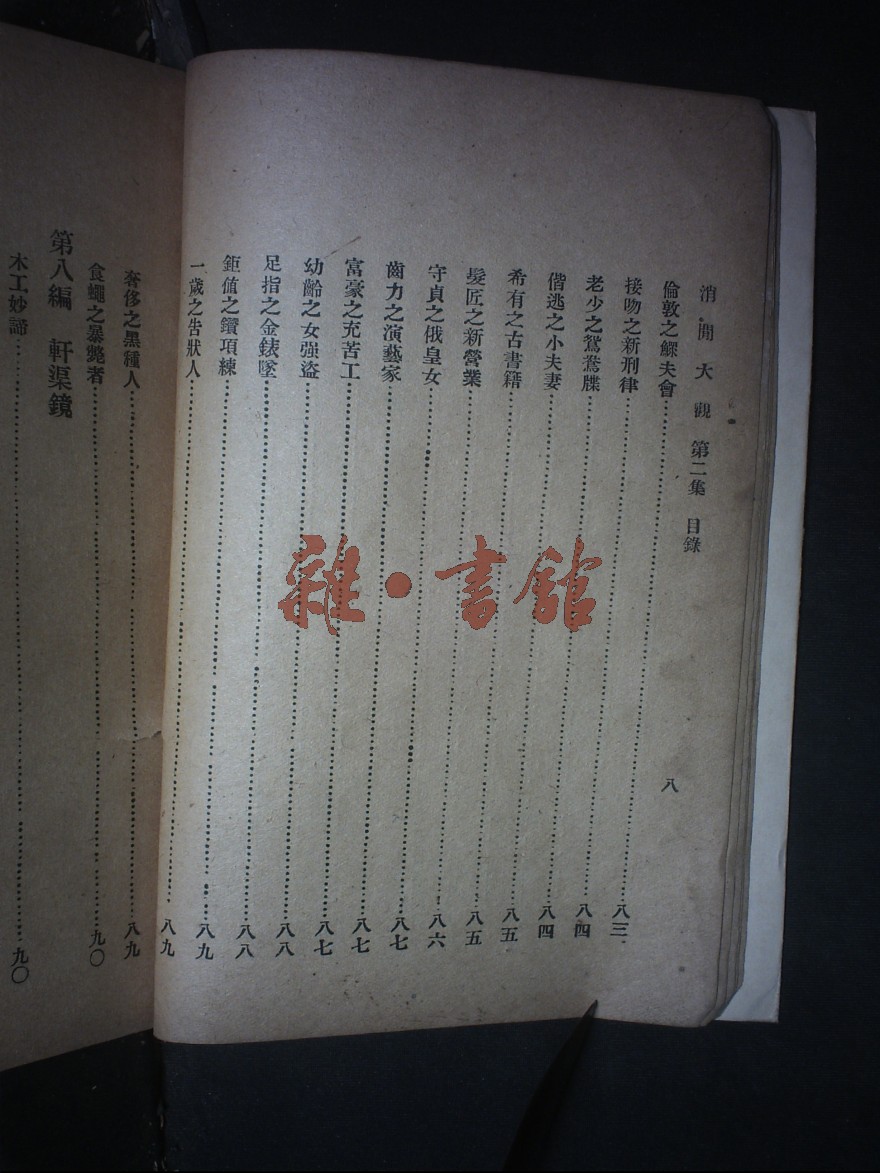 消閒大觀 第二集 目錄 八
倫敦之鰥夫會……八三
接吻之新刑律……八四
老少之鴛鴦牒……八四
偕逃之小夫妻……八五
希有之古書籍……八五
髮匠之新營業……八六
守貞之俄皇女……八七
齒力之演藝家……八七
富豪之充苦工……八七
幼齡之女强盜……八八
足指之金錶墜……八八
鉅值之鑽項練……八九
一歲之告狀人……八九
奢侈之黑種人……八九
食蠅之暴斃者……九〇
第八編 軒渠鏡
木工妙諦……九〇
雜·書館